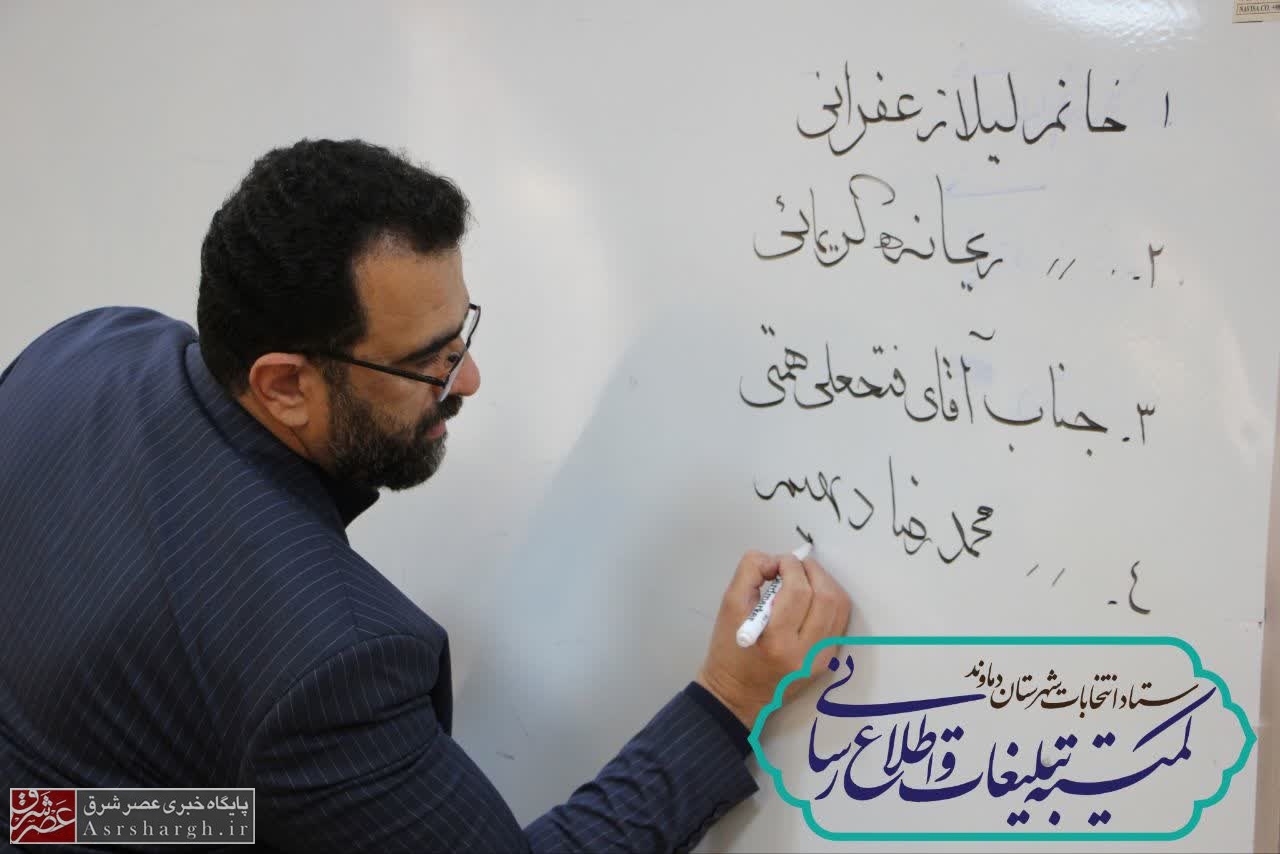 NAVISA CO.
۱ خانم لیلا زعفرانی
۲. // ریحانه کریمائی
۳. جناب آقای فتحعلی همتی
۴. // محمدرضا دهیمی
ستاد انتخابات شهرستان دماوند
کمیته تبلیغات و اطلاع رسانی
پایگاه خبری عصر شرق
عصر شرق
Asrshargh.ir